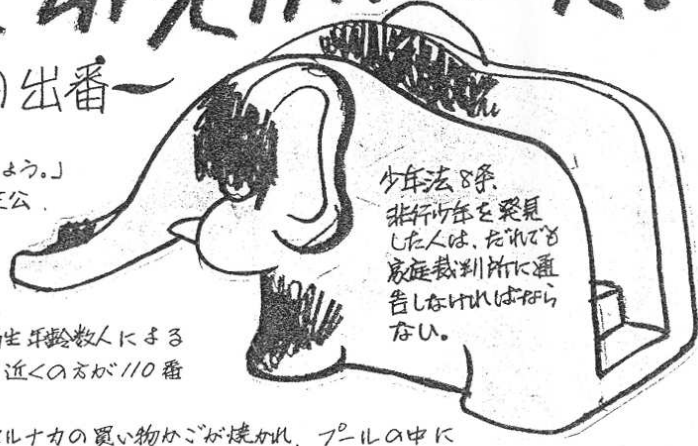 出番〜
ょう。」
少年法8条
非行少年を発見
した人は、だれでも
家庭裁判所に通
告しなければなら
ない。
生年齢数人による
近くの方が110番
ルナカの買い物かごが焼かれ、プールの中に